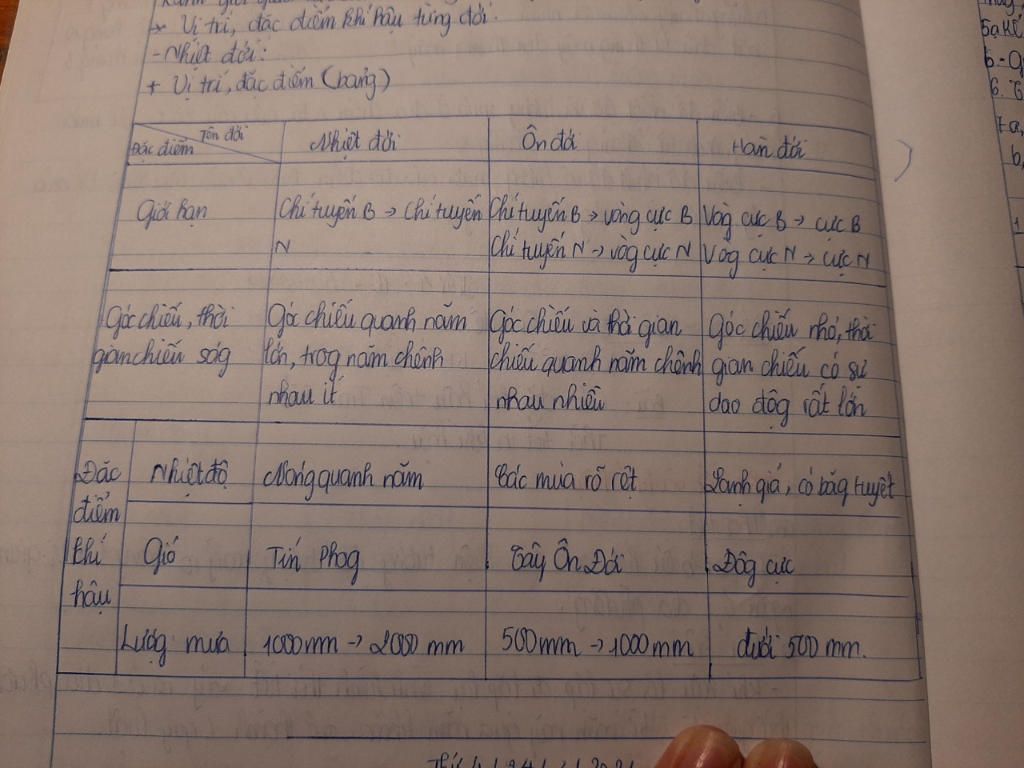 → Vị trí, đặc điểm khí hậu từng đới.
- Nhiệt đới:
+ Vị trí, đặc điểm (bảng)
Tên đới
Đặc điểm
Nhiệt đới
Ôn đới
Hàn đới
Giới hạn
Chí tuyến B → Chí tuyến
N
Chí tuyến B → vòng cực B
Chí tuyến N → vòg cực N
Vòg cực B → cực B
Vòg cực N → cực N
Góc chiếu, thời
gian chiếu ság
Góc chiếu quanh năm
lớn, trog năm chênh
nhau ít
Góc chiếu và thời gian
chiếu quanh năm chênh
nhau nhiều
Góc chiếu nhỏ, thời
gian chiếu có sự
dao độg rất lớn
Đặc
điểm
khí
hậu
Nhiệt độ
Nóng quanh năm
Các mùa rõ rệt
Lạnh giá, có băg tuyết
Gió
Tín Phog
Tây Ôn Đới
Đôg cực
Lượg mưa
1000mm → 2000 mm
500mm → 1000mm
dưới 500 mm.